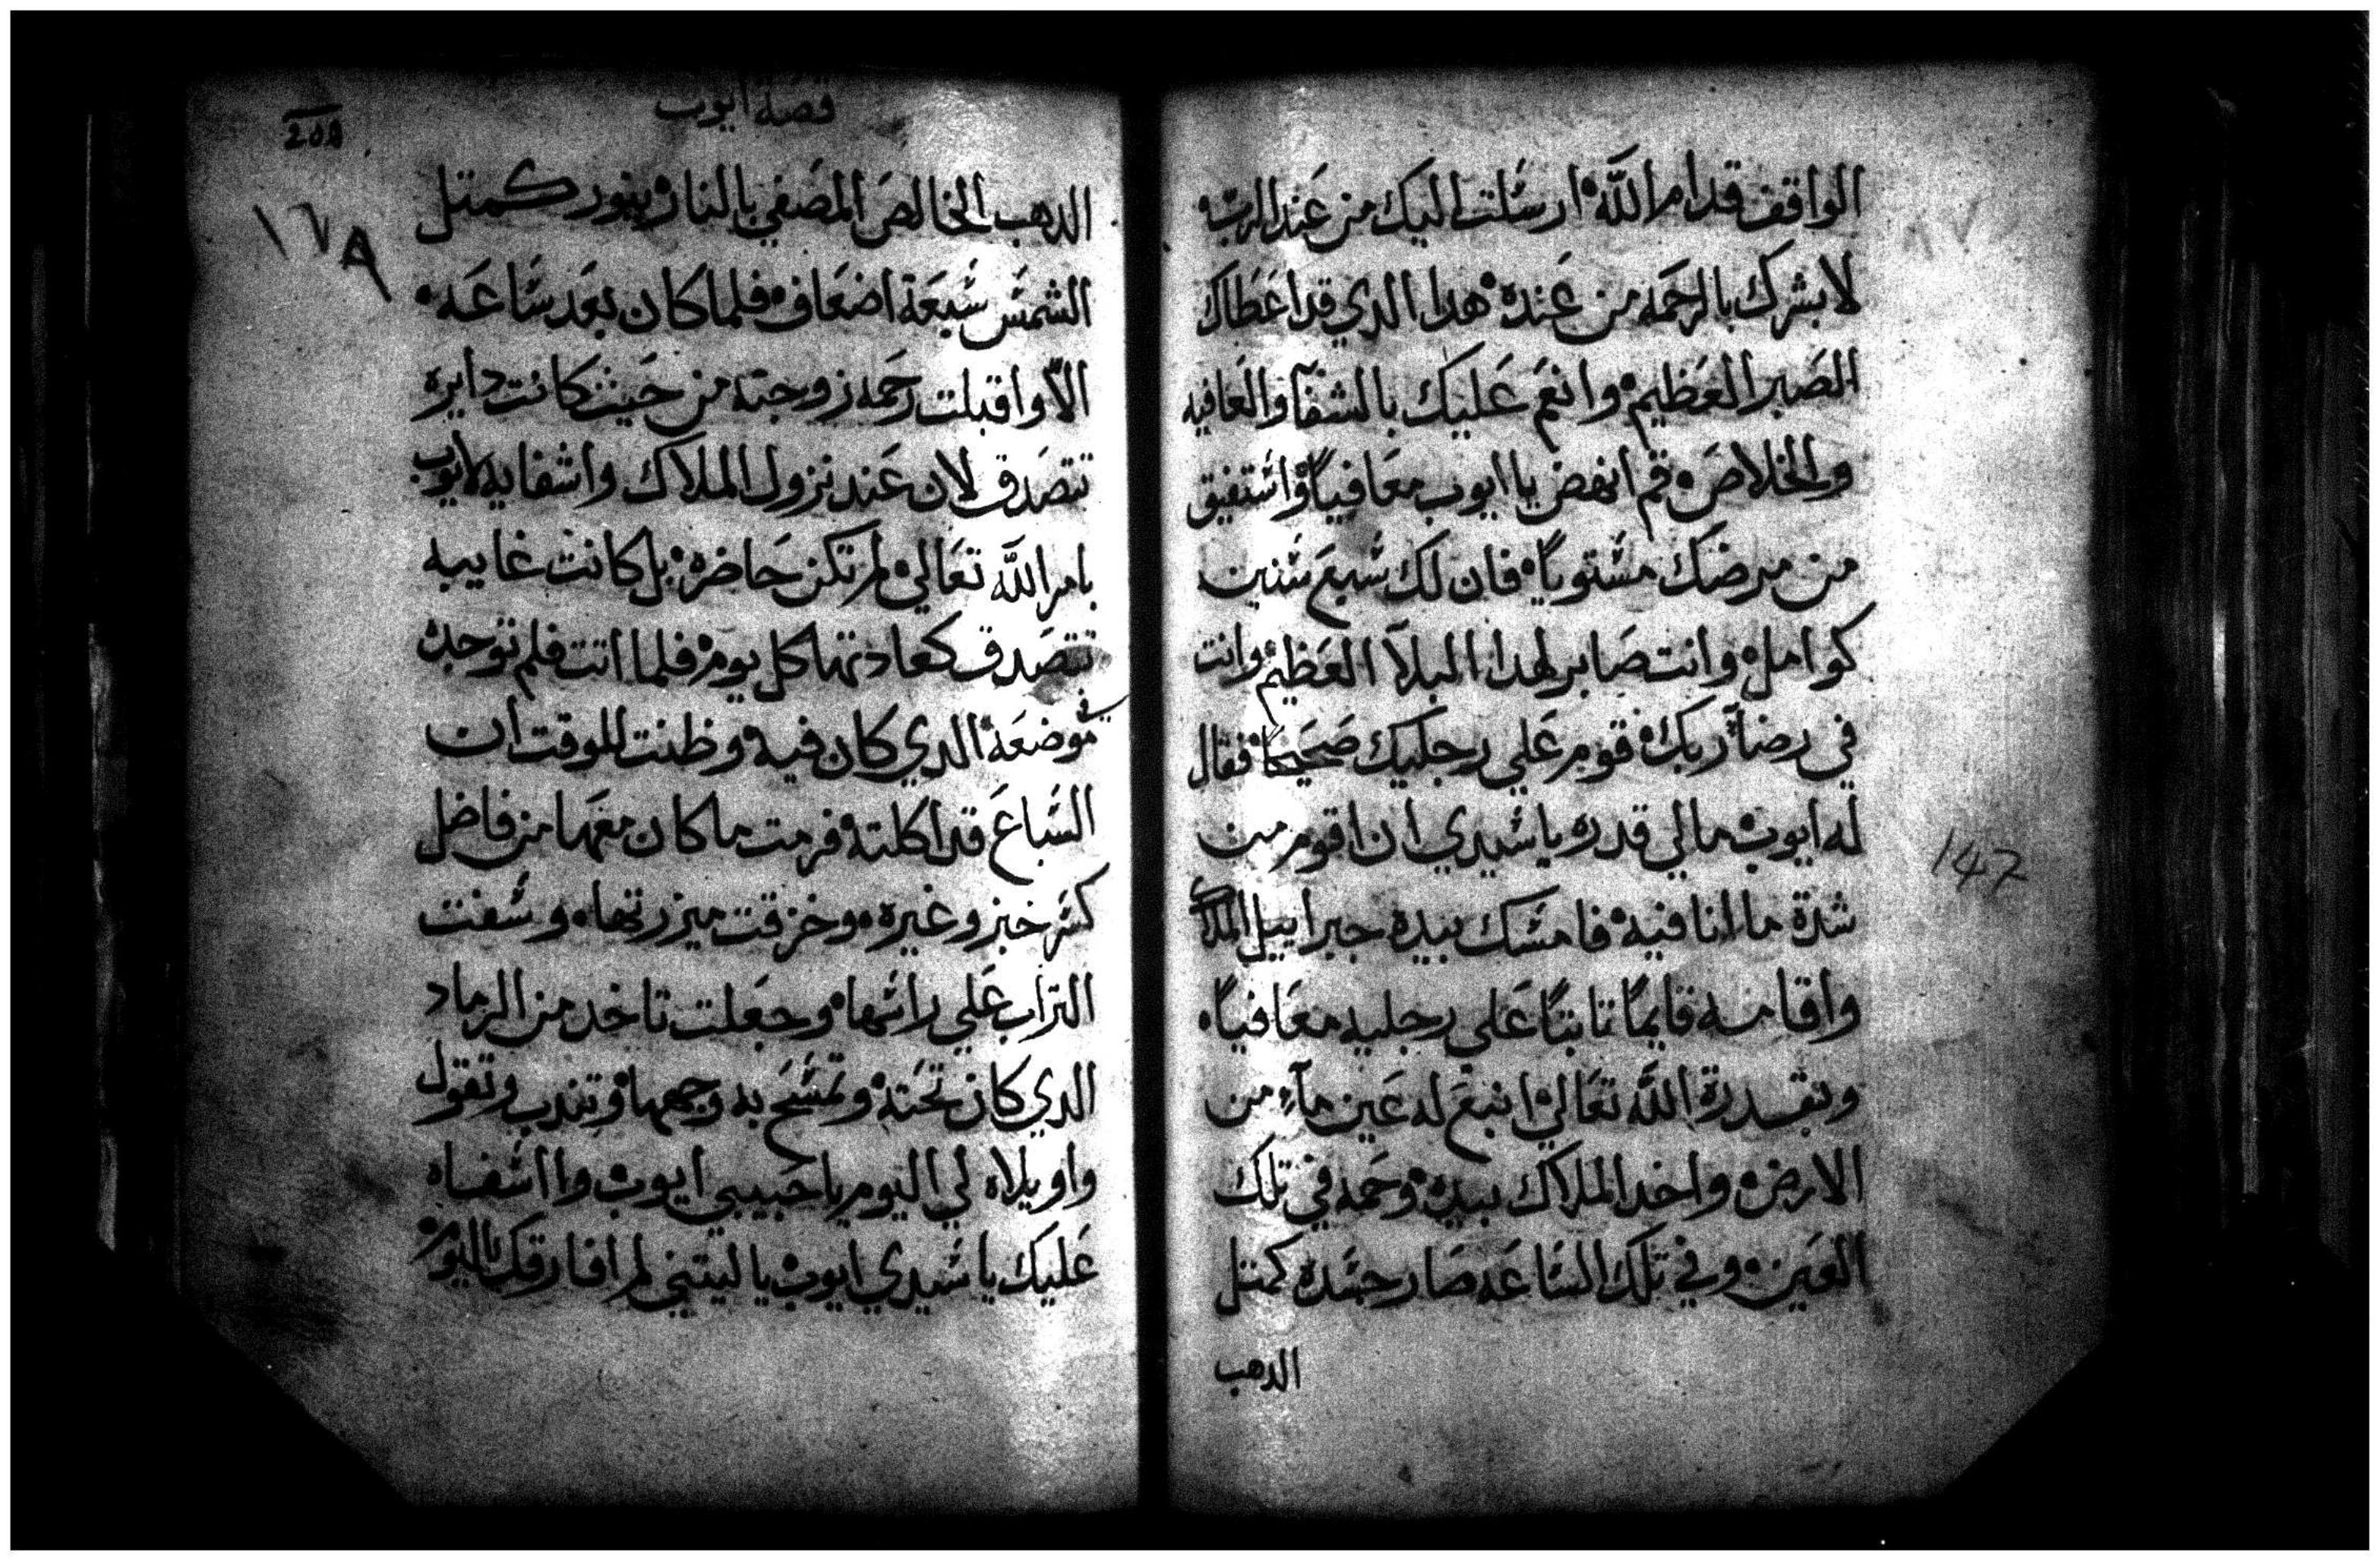 الواقف قدام اللّه ارسلت اليك من عند الرب
لابشرك بالرحمه من عنده هدا الدي قد اعطاك
الصبر العظيم وانعم عليك بالشفآ والعافيه
والخلاص قم انهض يا ايوب معافياً واستفيق
من مرضك مستوياً فان لك سبع سنين
كوامل وانت صابر لهدا البلآ العظيم وانت
في رضآ ربك قوم علي رجليك صحيحاً فقال
له ايوب مالي قدره يا سيدي ان اقوم من
شدة ما انا فيه فامسك بيده جبراييل الملاك
واقامه قايماً تابتاً علي رجليه معافياً
وبقدرة اللّه تعالي انبع له عين مآء من
الارض واخد الملاك بيده وحمه في تلك
العين وفي تلك الساعه صار جسده كمتل
الدهب
قصة ايوب
208
١٦٨
147
الدهب الخالص المصفي بالنار ينور كمتل
الشمس سبعة اضعاف فلما كان بعد ساعه
الاّ واقبلت رحمه زوجته من حيث كانت دايره
تتصدق لان عند نزول الملاك واشفايه لايوب
بامر اللّه تعالي لم تكن حاضره بل كانت غايبه
تتصدق كعادتها كل يوم فلما اتت فلم توجده
في موضعه الدي كان فيه وظنت للوقت ان
السباع قد اكلته فرمت ما كان معها من فاضل
كسر خبز وغيره وخزقت ميزرتها وسفت
التراب علي راسها وجعلت تاخد من الرماد
الدي كان تحته وتمسح به وجهها وتندب وتقول
واويلاه لي اليوم يا حبيبي ايوب وااسفاه
عليك يا سيدي ايوب يا ليتني لم افارقك اليوم